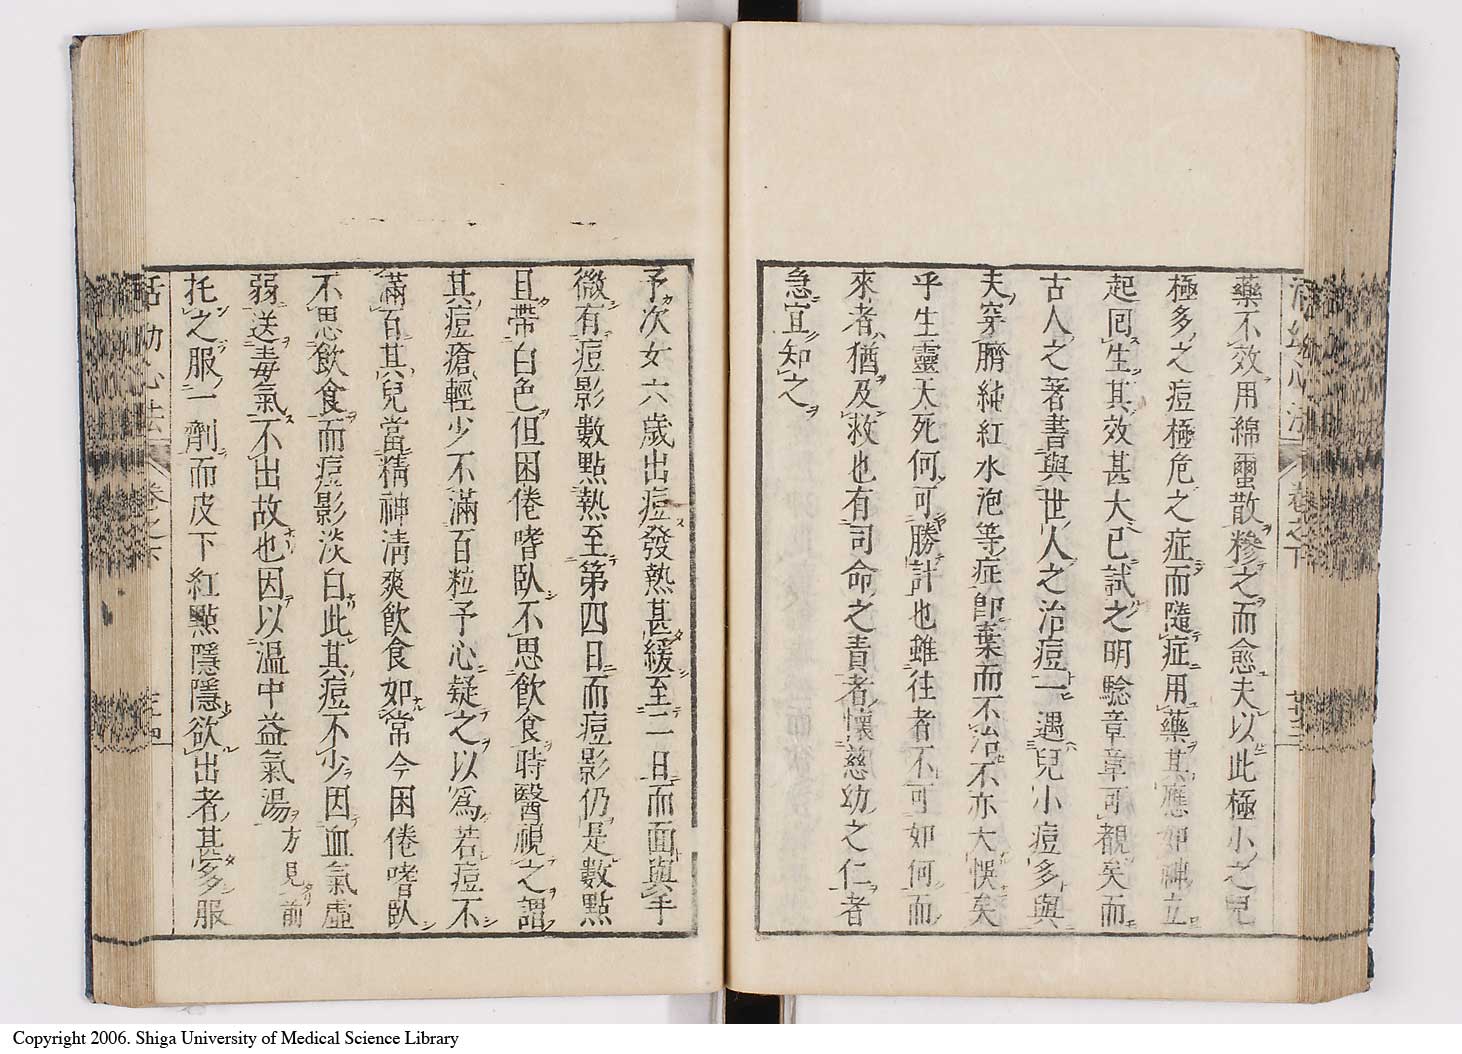 藥不效用綿蠒散糝之而愈夫以此極小之兒
極多之痘極危之症而隨症用藥其應如神立
起囘生其效甚大已試之明驗章章可覩矣而
古人之著書與世人之治痘一遇兒小痘多與
夫穿臍純紅水泡等症即棄而不治不亦大悞矣
乎生靈夭死何可勝計也雖往者不可如何而
來者猶及救也有司命之責者懷慈幼之仁者
急宜知之
予次女六歲出痘發熱甚緩至二日而面與手
微有痘影數點熱至第四日而痘影仍是數點
且帶白色但困倦嗜臥不思飲食時醫視之謂
其痘瘡輕少不滿百粒予心疑之以爲若痘不
滿百其兒當精神清爽飲食如常今困倦嗜臥
不思飲食而痘影淡白此其痘不少因血氣虛
弱送毒氣不出故也因以温中益氣湯方見前
托之服一劑而皮下紅點隱隱欲出者甚多服
活幼心法 卷之下
Copyright 2006. Shiga University of Medical Science Library